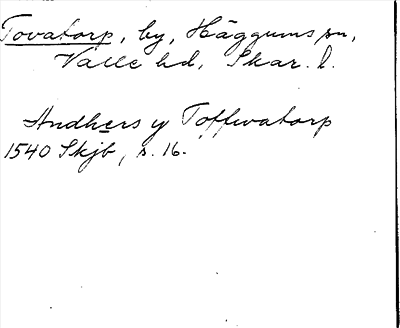 Tovatorp, by, Häggums sn,
Valle hd, Skar. l.
Andhers y Toffwatorp
1540 Skjb, s. 16.